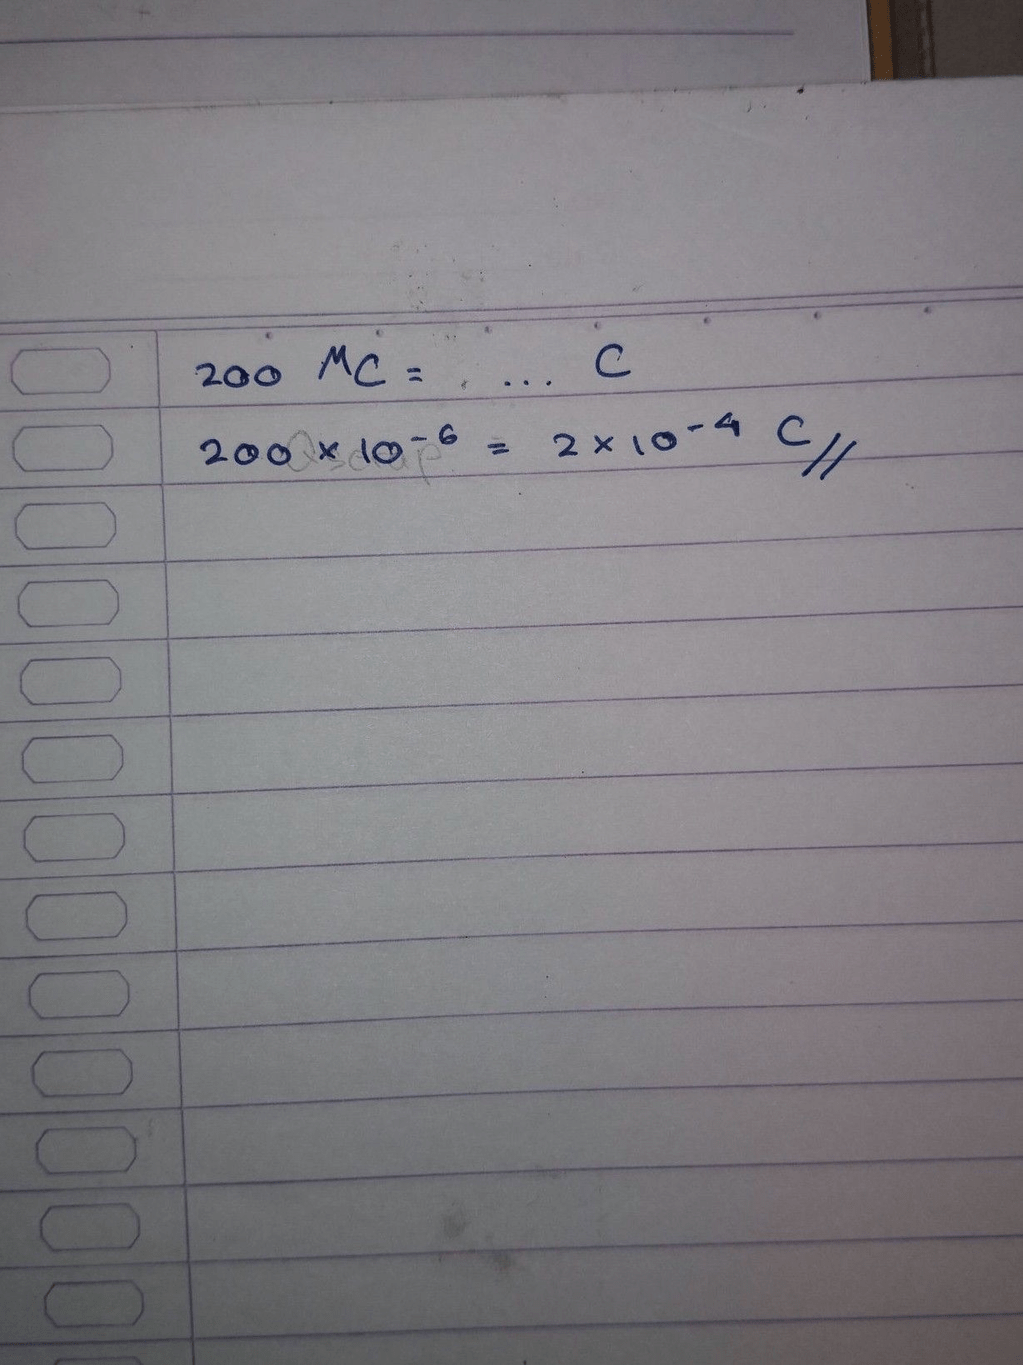 200 MC = ... C
200 × 10⁻⁶ = 2 × 10⁻⁴ C//